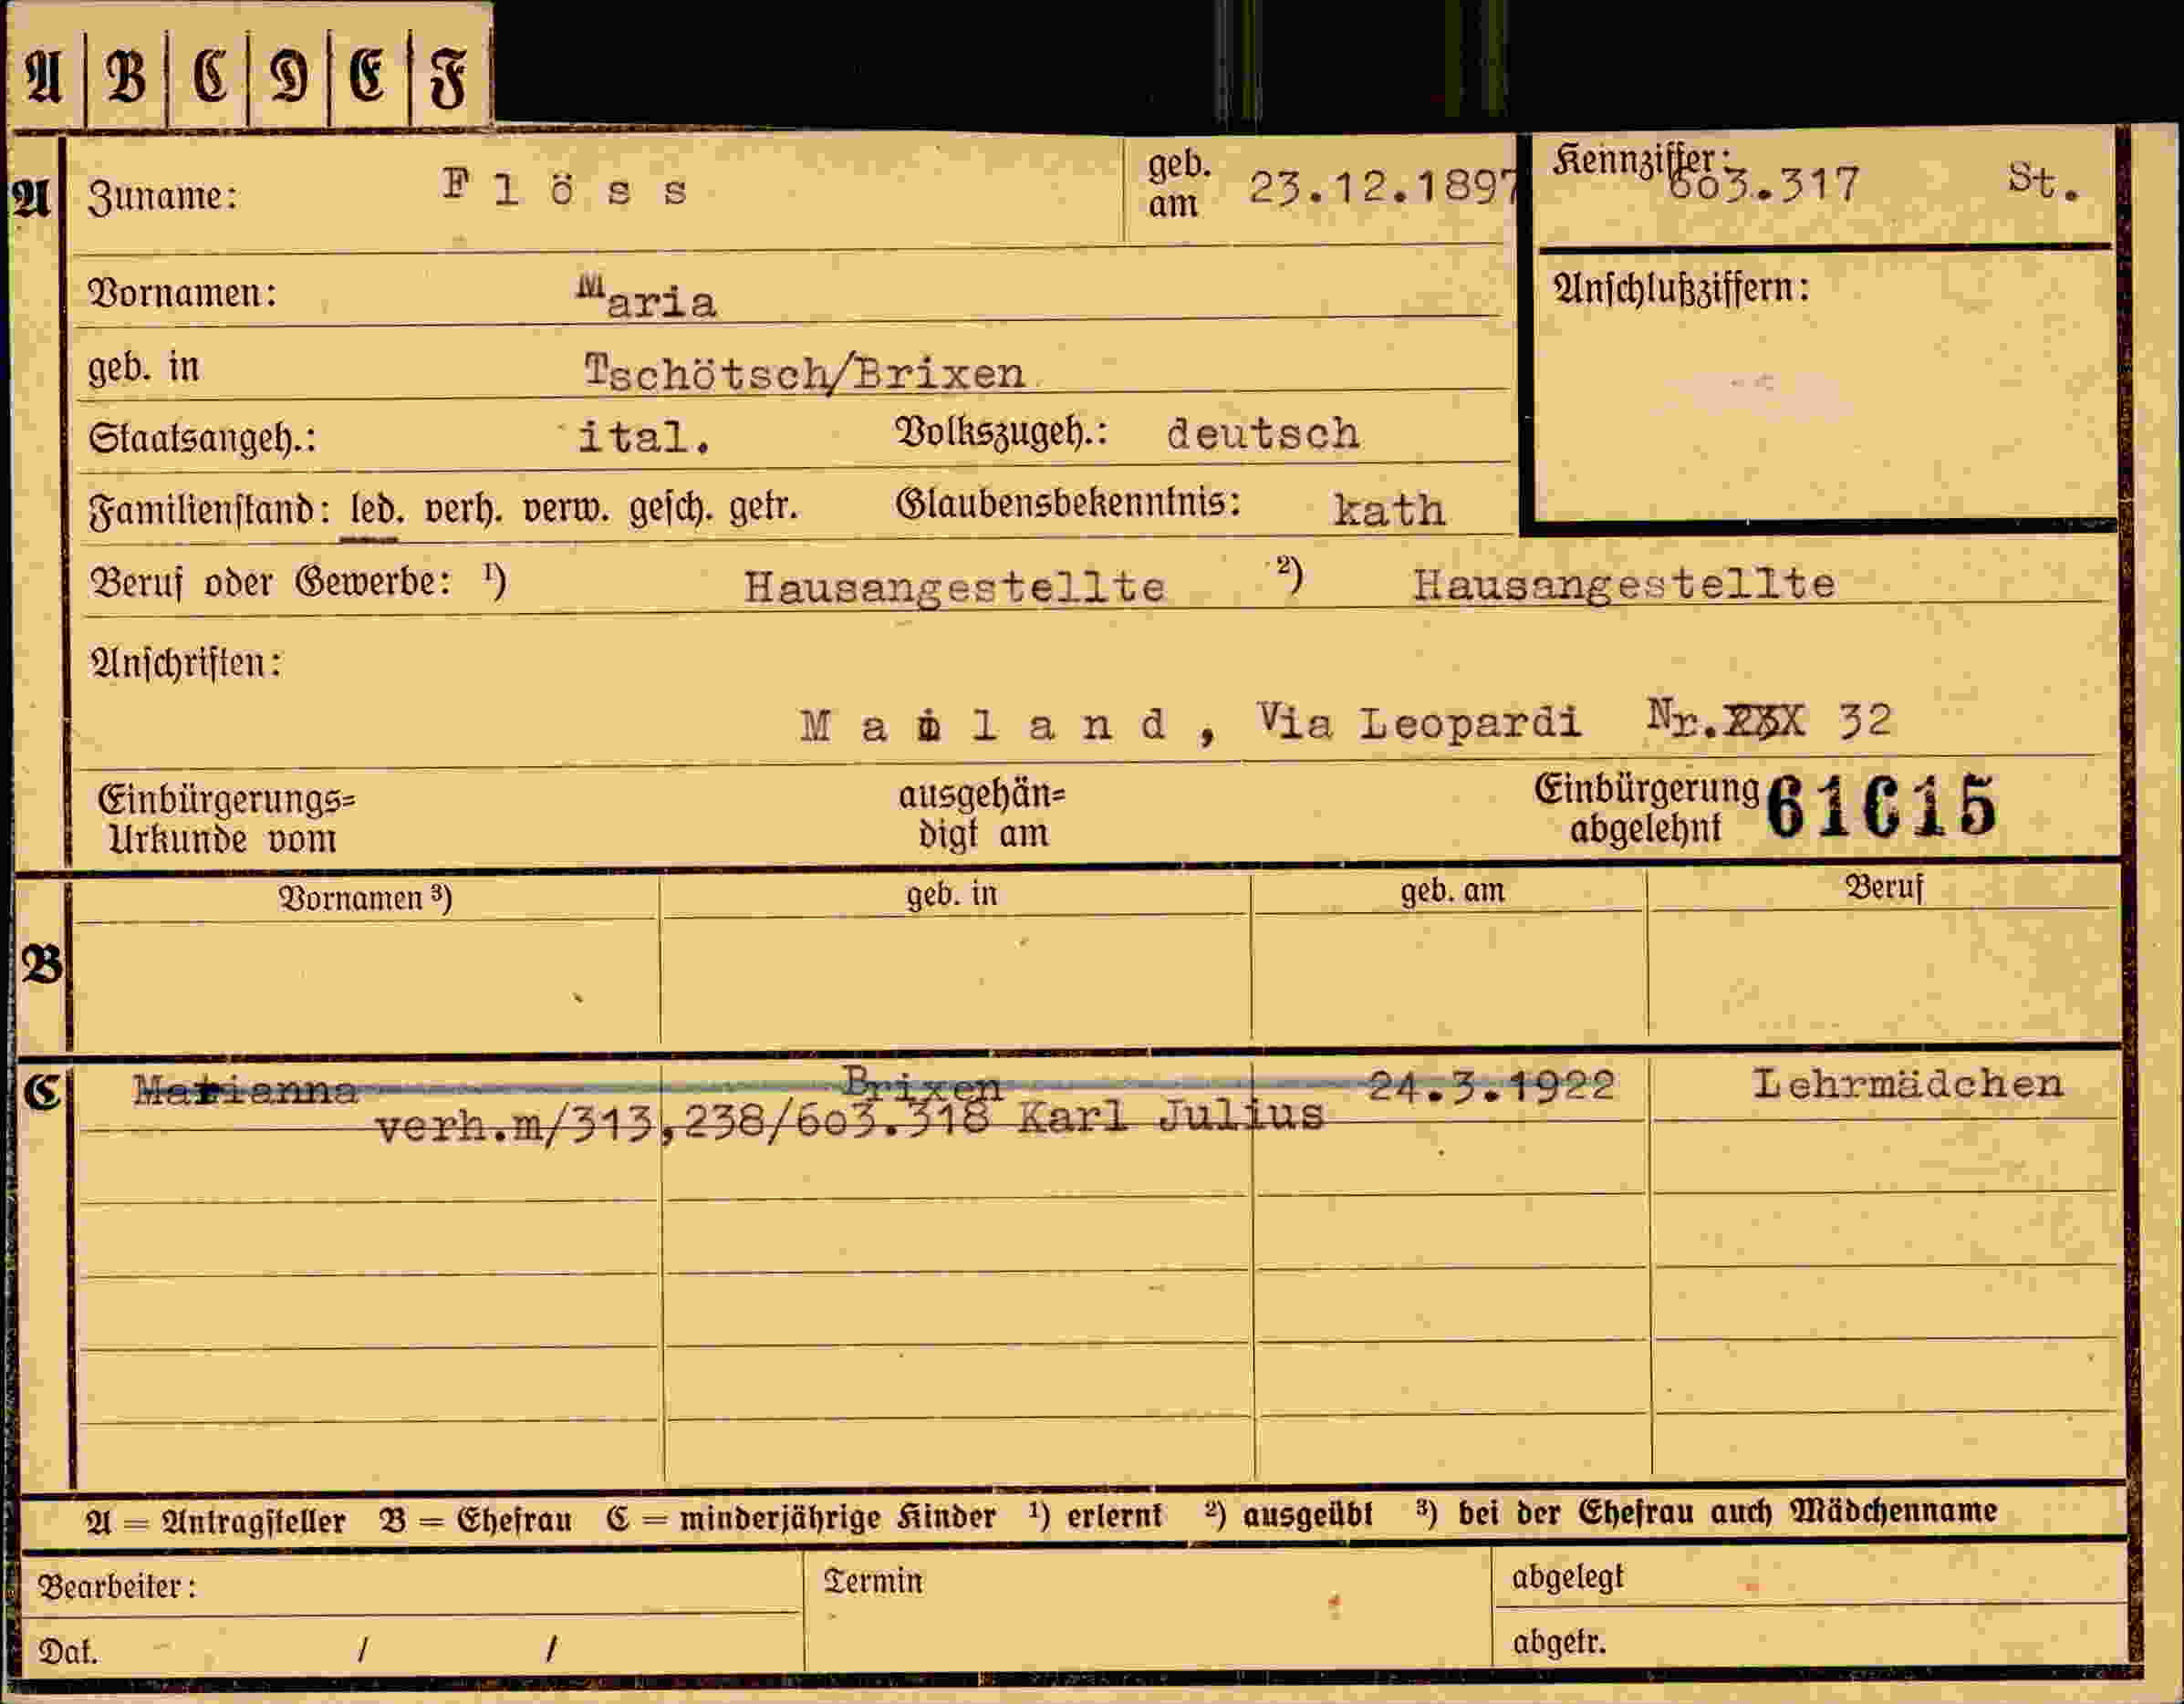 A B C D E F
A Zuname: F l ö s s geb. am 23.12.1897 Kennziffer: 603.317 St.
Vornamen: Maria Anschlußziffern:
geb. in Tschötsch/Brixen
Staatsangeh.: ital. Volkszugeh.: deutsch
Familienstand: led. verh. verw. gesch. getr. Glaubensbekenntnis: kath
Beruf oder Gewerbe: ¹) Hausangestellte ²) Hausangestellte
Anschriften:
M a i l a n d , Via Leopardi Nr. 32
Einbürgerungs= ausgehän= Einbürgerung 61615
Urkunde vom digt am abgelehnt
Vornamen ³) geb. in geb. am Beruf
B
C Marianna Brixen 24.3.1922 Lehrmädchen
verh.m/313,238/603.318 Karl Julius
A = Antragsteller B = Ehefrau C = minderjährige Kinder ¹) erlernt ²) ausgeübt ³) bei der Ehefrau auch Mädchenname
Bearbeiter: Termin abgelegt
Dat. / / abgetr.